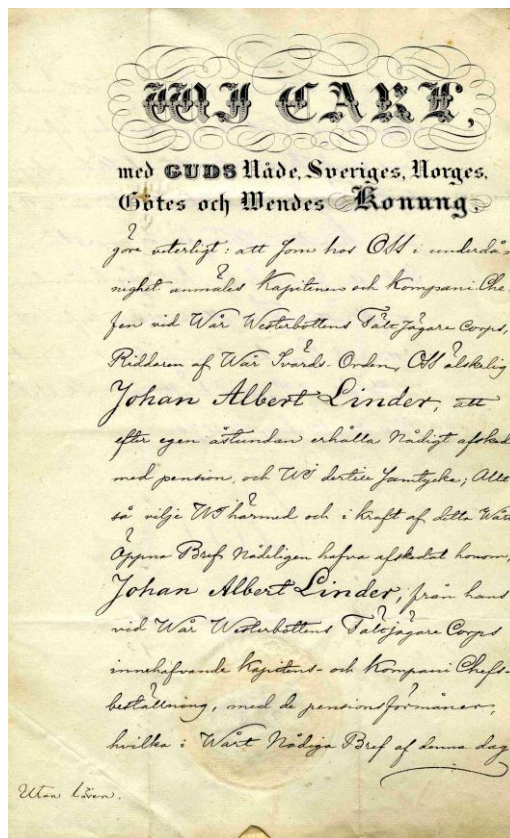 WJ CARL,
med GUDS Nåde, Sveriges, Norges,
Götes och Wendes Konung.
göre veterligt: att som hos OSS i underdå-
nighet anmäles Kapitenen och Kompani Che-
fen vid Wår Westerbottens Fält Jägare Corps,
Riddaren af Wår Svärds-Orden, OSS älskelig
Johan Albert Linder, att
efter egen åstundan erhålla Nådigt afsked
med pension, och WJ dertill samtycke; Allt
så vilje WJ härmed och i kraft af detta Wårt
Öppna Bref Nådeligen hafva afskedat honom,
Johan Albert Linder, från hans
vid Wår Westerbottens Fältjägare Corps
innehafvande Kapitens- och Kompani Chefs-
beställning, med de pensionsförmåner,
hvilka i Wårt Nådiga Bref af denna dag
Utan lösen.